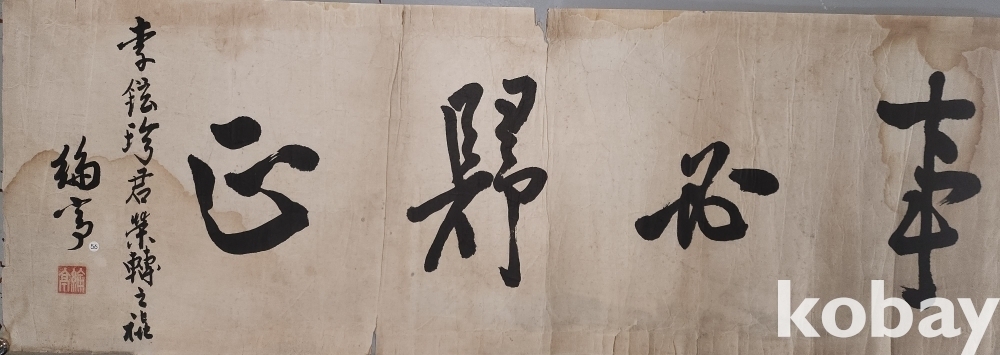 事必歸正
李鉉珍君榮轉之
亭
56
kobay